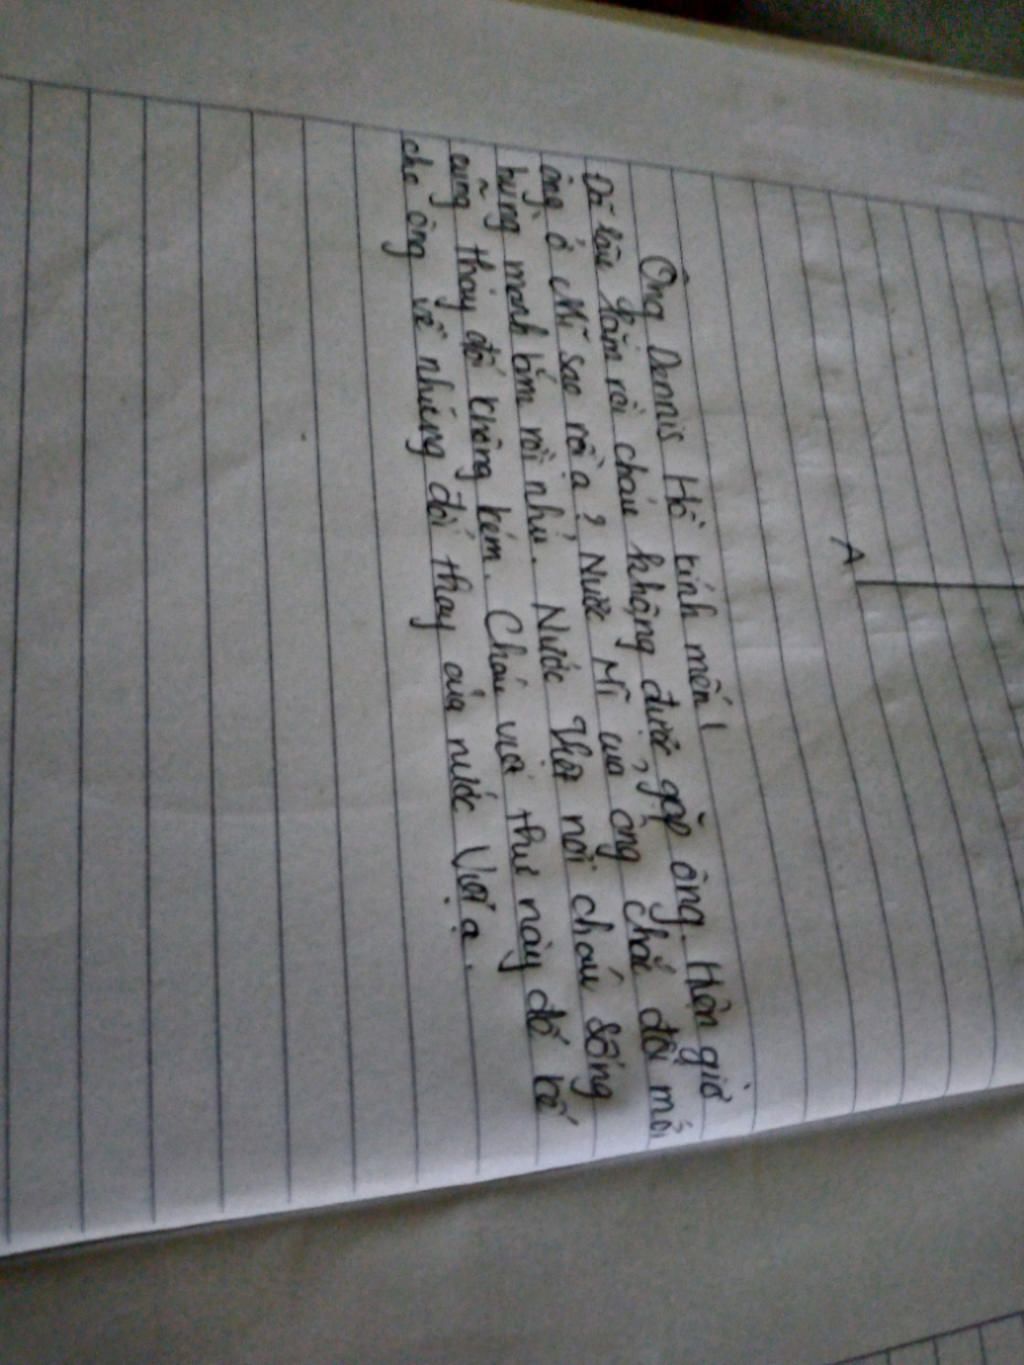 A
Ông Dennis Hồ kính mến!
Đã lâu lắm rồi cháu không được gặp ông. Hiện giờ
ông ở Mĩ sao rồi ạ? Nước Mĩ của ông chắc đổi mới
hùng mạnh lắm rồi nhỉ. Nước Việt nơi cháu sống
cũng thay đổi không kém. Cháu viết thư này để kể
cho ông về những đổi thay của nước Việt ạ.